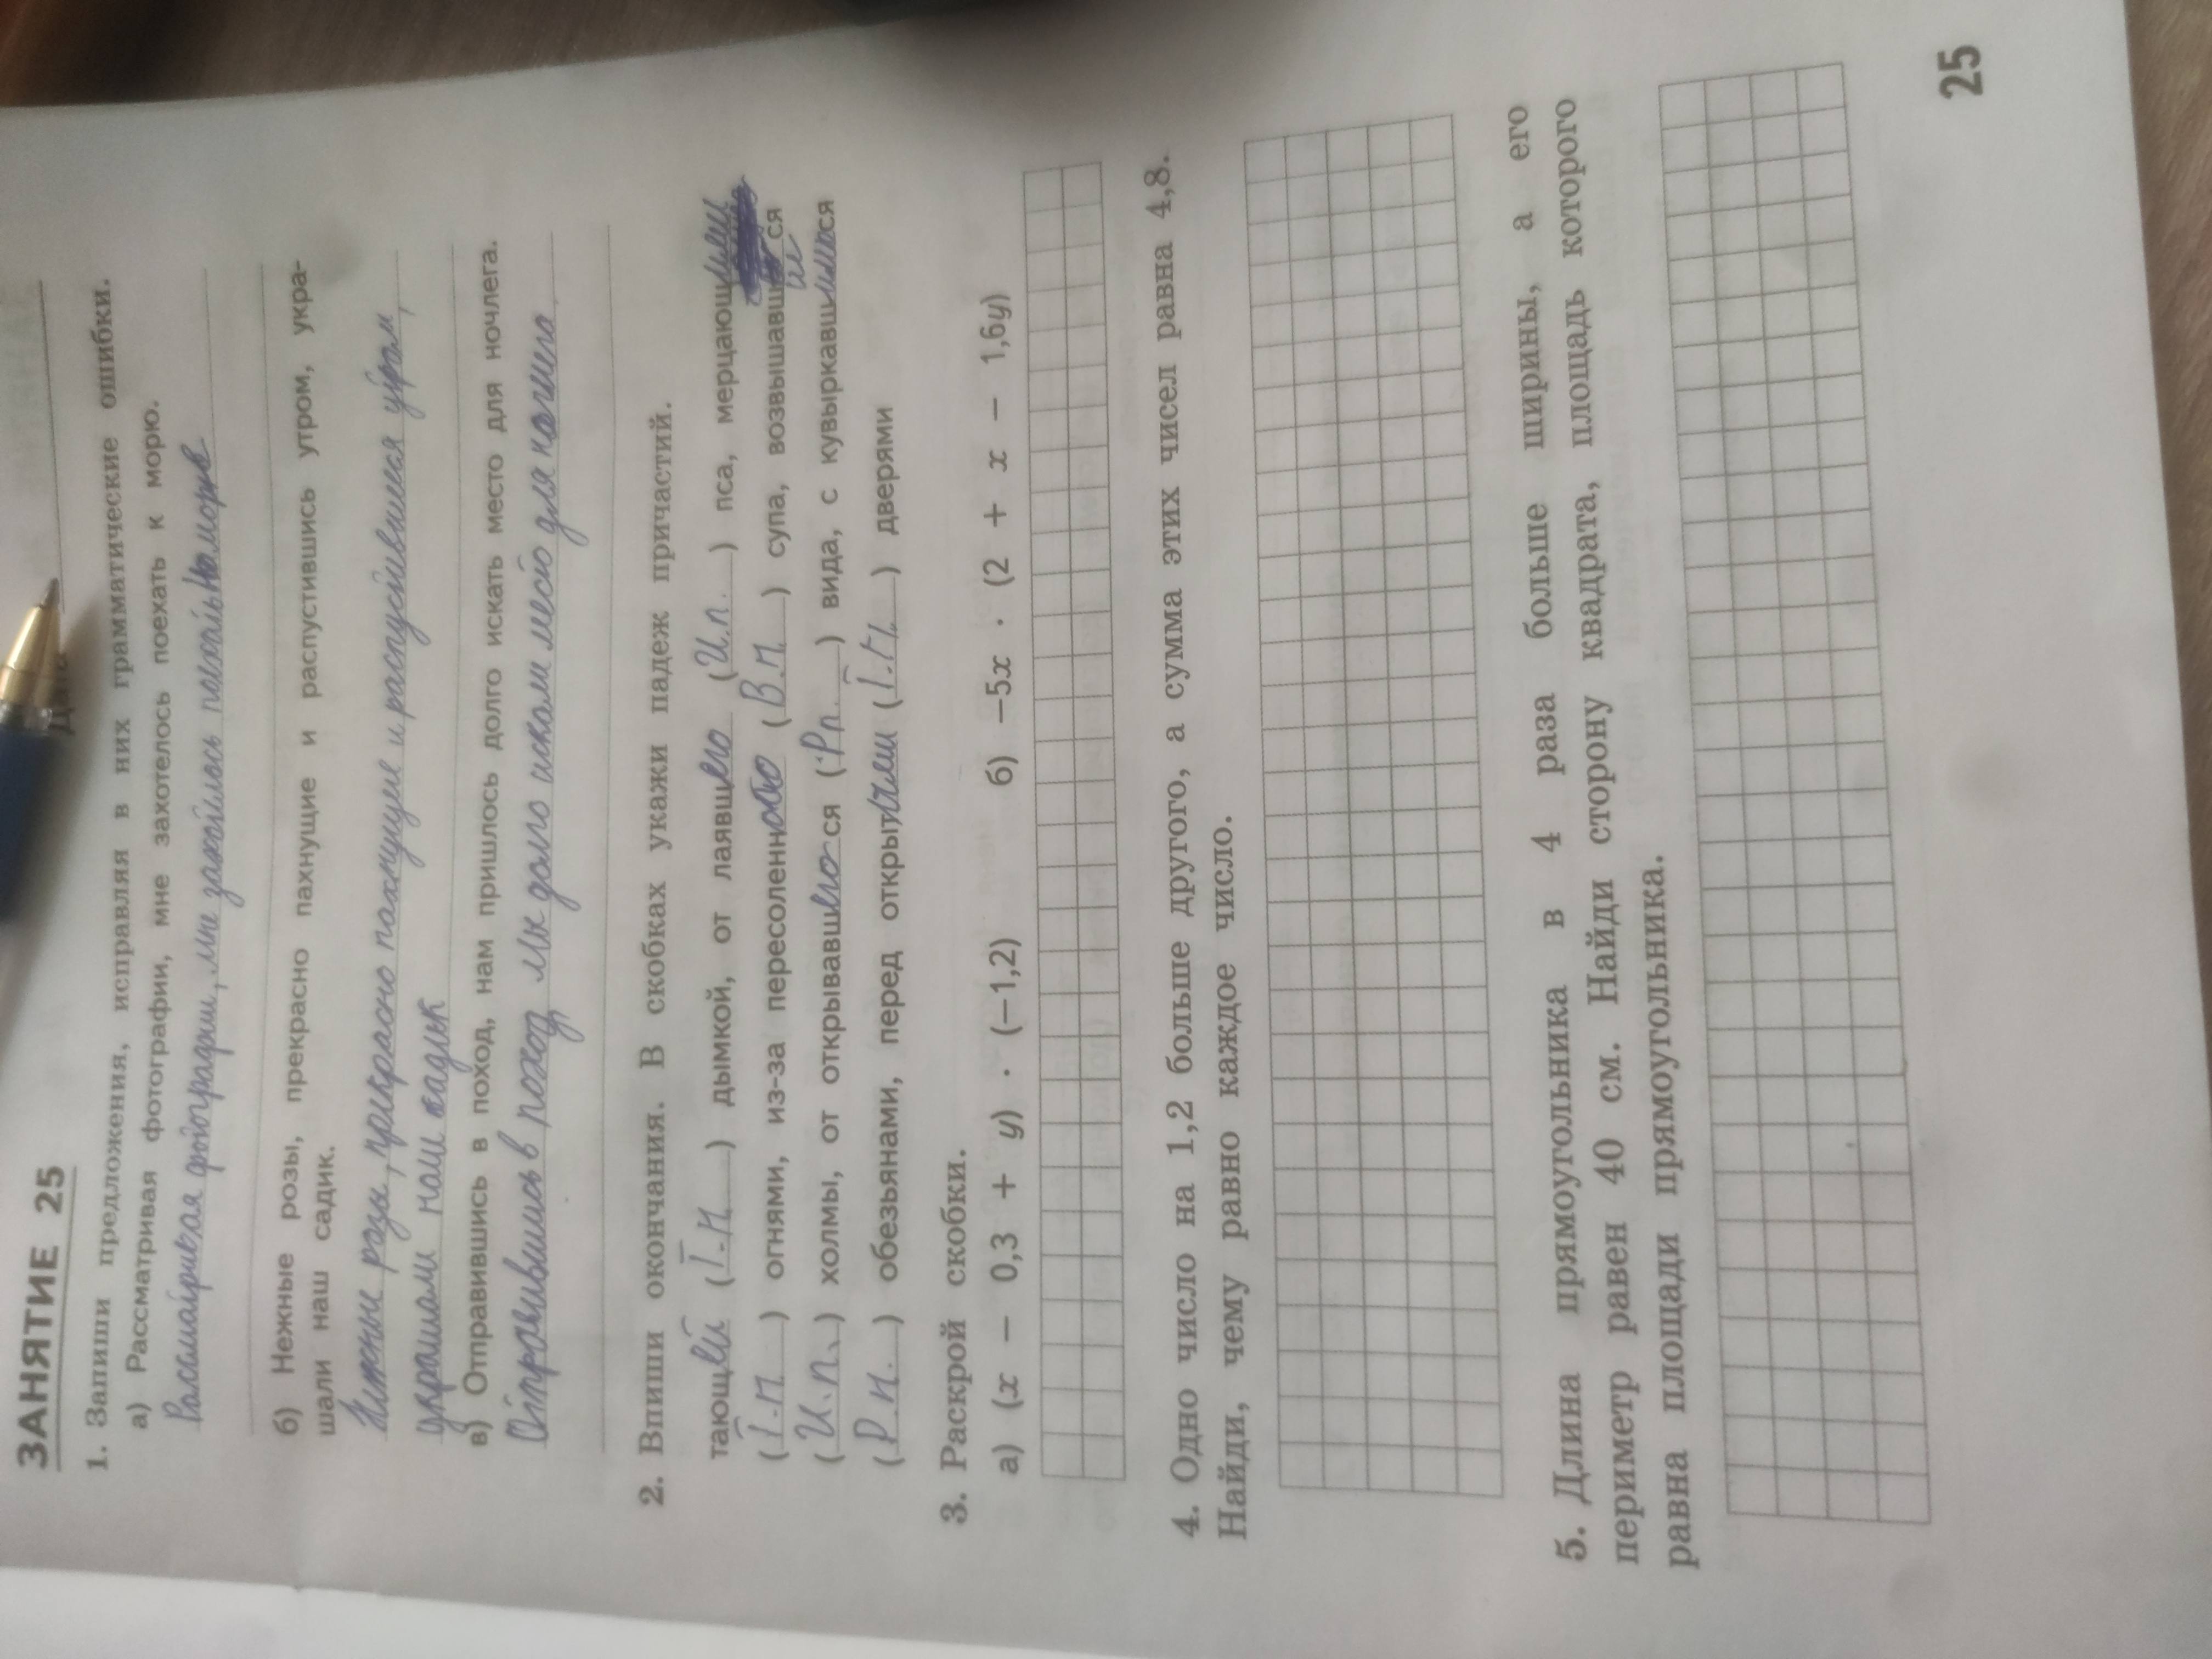 ЗАНЯТИЕ 25
1. Запиши предложения, исправляя в них грамматические ошибки.
а) Рассматривая фотографии, мне захотелось поехать к морю.
Рассматривая фотографии, мне захотелось поехать на море
б) Нежные розы, прекрасно пахнущие и распустившись утром, укра-
шали наш садик.
Нежные розы, прекрасно пахнущие и распустившиеся утром,
украшали наш садик
в) Отправившись в поход, нам пришлось долго искать место для ночлега.
Отправившись в поход мы долго искали место для ночлега
2. Впиши окончания. В скобках укажи падеж причастий.
тающей (Т.П.) дымкой, от лаявшего (И.п.) пса, мерцающими
(Т.П.) огнями, из-за пересоленного (В.П.) супа, возвышавшиеся
(И.п.) холмы, от открывавшегося (Р.п.) вида, с кувыркавшимися
(Р.П.) обезьянами, перед открытыми (Т.П.) дверями
3. Раскрой скобки.
а) (x − 0,3 + y) · (−1,2) б) −5x · (2 + x − 1,6y)
4. Одно число на 1,2 больше другого, а сумма этих чисел равна 4,8.
Найди, чему равно каждое число.
5. Длина прямоугольника в 4 раза больше ширины, а его
периметр равен 40 см. Найди сторону квадрата, площадь которого
равна площади прямоугольника.
25